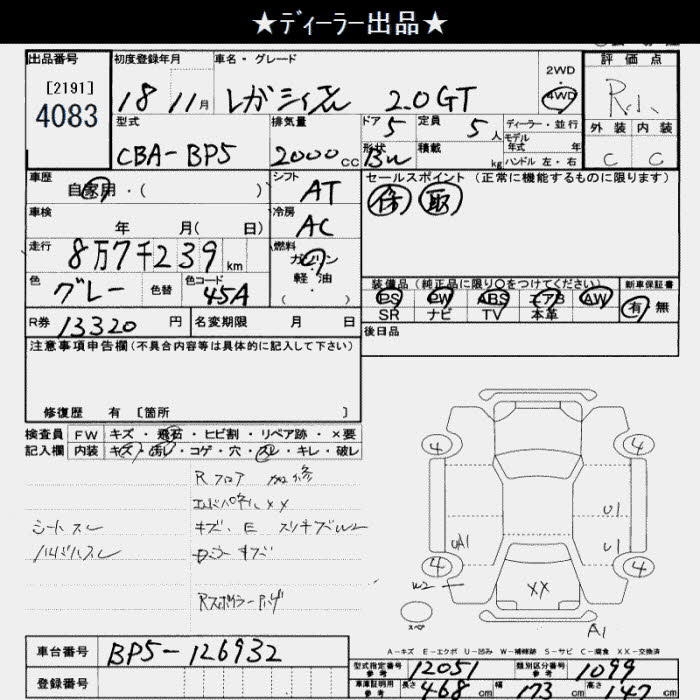 ★ディーラー出品★
出品番号
[2191]
4083
初度登録年月
18 11月
車名・グレード
レガシィ 2.0GT
2WD
4WD
評価点
外装 内装
C C
型式
CBA-BP5
排気量
2000cc
ドア 5
形状
定員 5人
積載 kg
ディーラー・並行
モデル
年式 年
ハンドル 左・右
車歴
自家用・( )
シフト
AT
セールスポイント (正常に機能するものに限ります)
車検
年 月( 日)
冷房
AC
走行
8万7千239km
燃料
ガソリン
軽油
( ・ )
色
グレー
色替
色コード
45A
装備品(純正品に限り○をつけてください)
PS PW ABS エアB AW
SR ナビ TV 本革
新車保証書
有 無
R券 13320円
名変期限 月 日
後日品
注意事項申告欄(不具合内容等は具体的に記入して下さい)
修復歴 有 〔箇所 〕
検査員
記入欄
FW キズ・飛石・ヒビ割・リペア跡・×要
内装 キズ・汚レ・コゲ・穴・スレ・キレ・破レ
Rフロア 加修
エンドパネルXX
シートスレ
キズ、E スリキズW2
ハンドルスレ
4 4
U1
UA1 U1
4 4
W2 XX
スペア
A1
A-キズ E-エクボ U-凹み W-補修跡 S-サビ C-腐食 XX-交換済
車台番号 BP5-126932
登録番号
型式指定番号
参考
12051
類別区分番号
参考
1099
車庫証明用
参考
長さ 468cm 幅 173cm 高さ 147cm